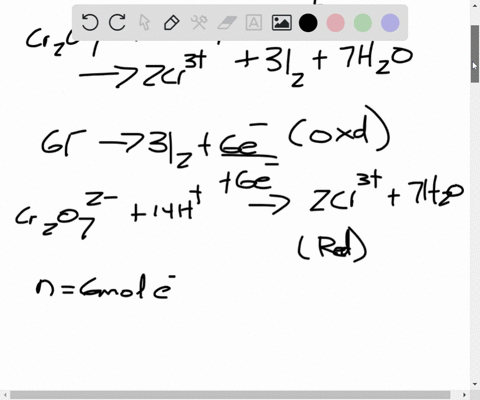 Cr₂O
→ 2Cr³⁺ + 3I₂ + 7H₂O
6I⁻ → 3I₂ + 6e⁻ (oxd)
Cr₂O₇²⁻ + 14H⁺ + 6e⁻ → 2Cr³⁺ + 7H₂O
(Red)
n = 6 mol e⁻